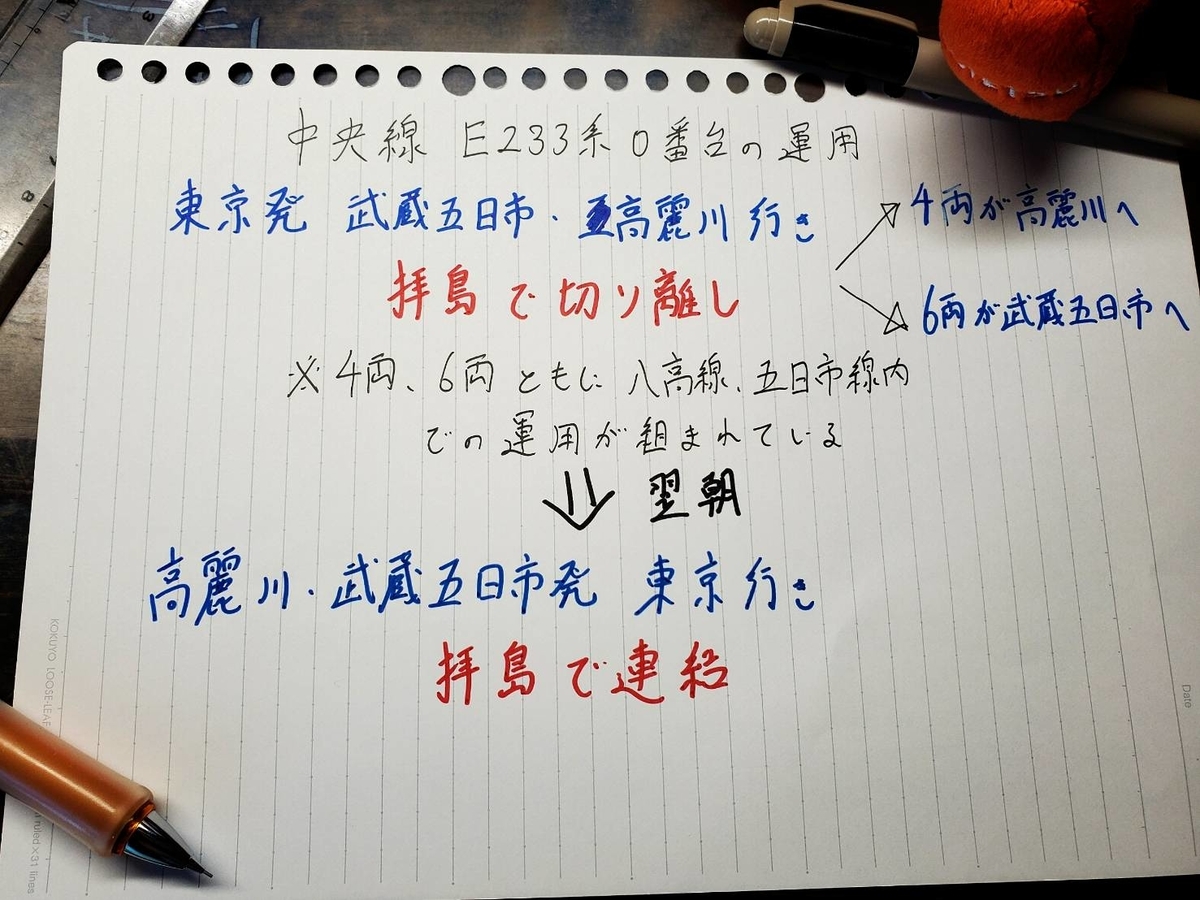 中央線 E233系 0番台の運用
東京発 武蔵五日市・高麗川 行き
4両が高麗川へ
拝島で切り離し
6両が武蔵五日市へ
※4両、6両ともに八高線、五日市線内
での運用が組まれている
⇓ 翌朝
高麗川・武蔵五日市発 東京行き
拝島で連結
KOKUYO LOOSE-LEAF
ruled×31 lines
Date
8